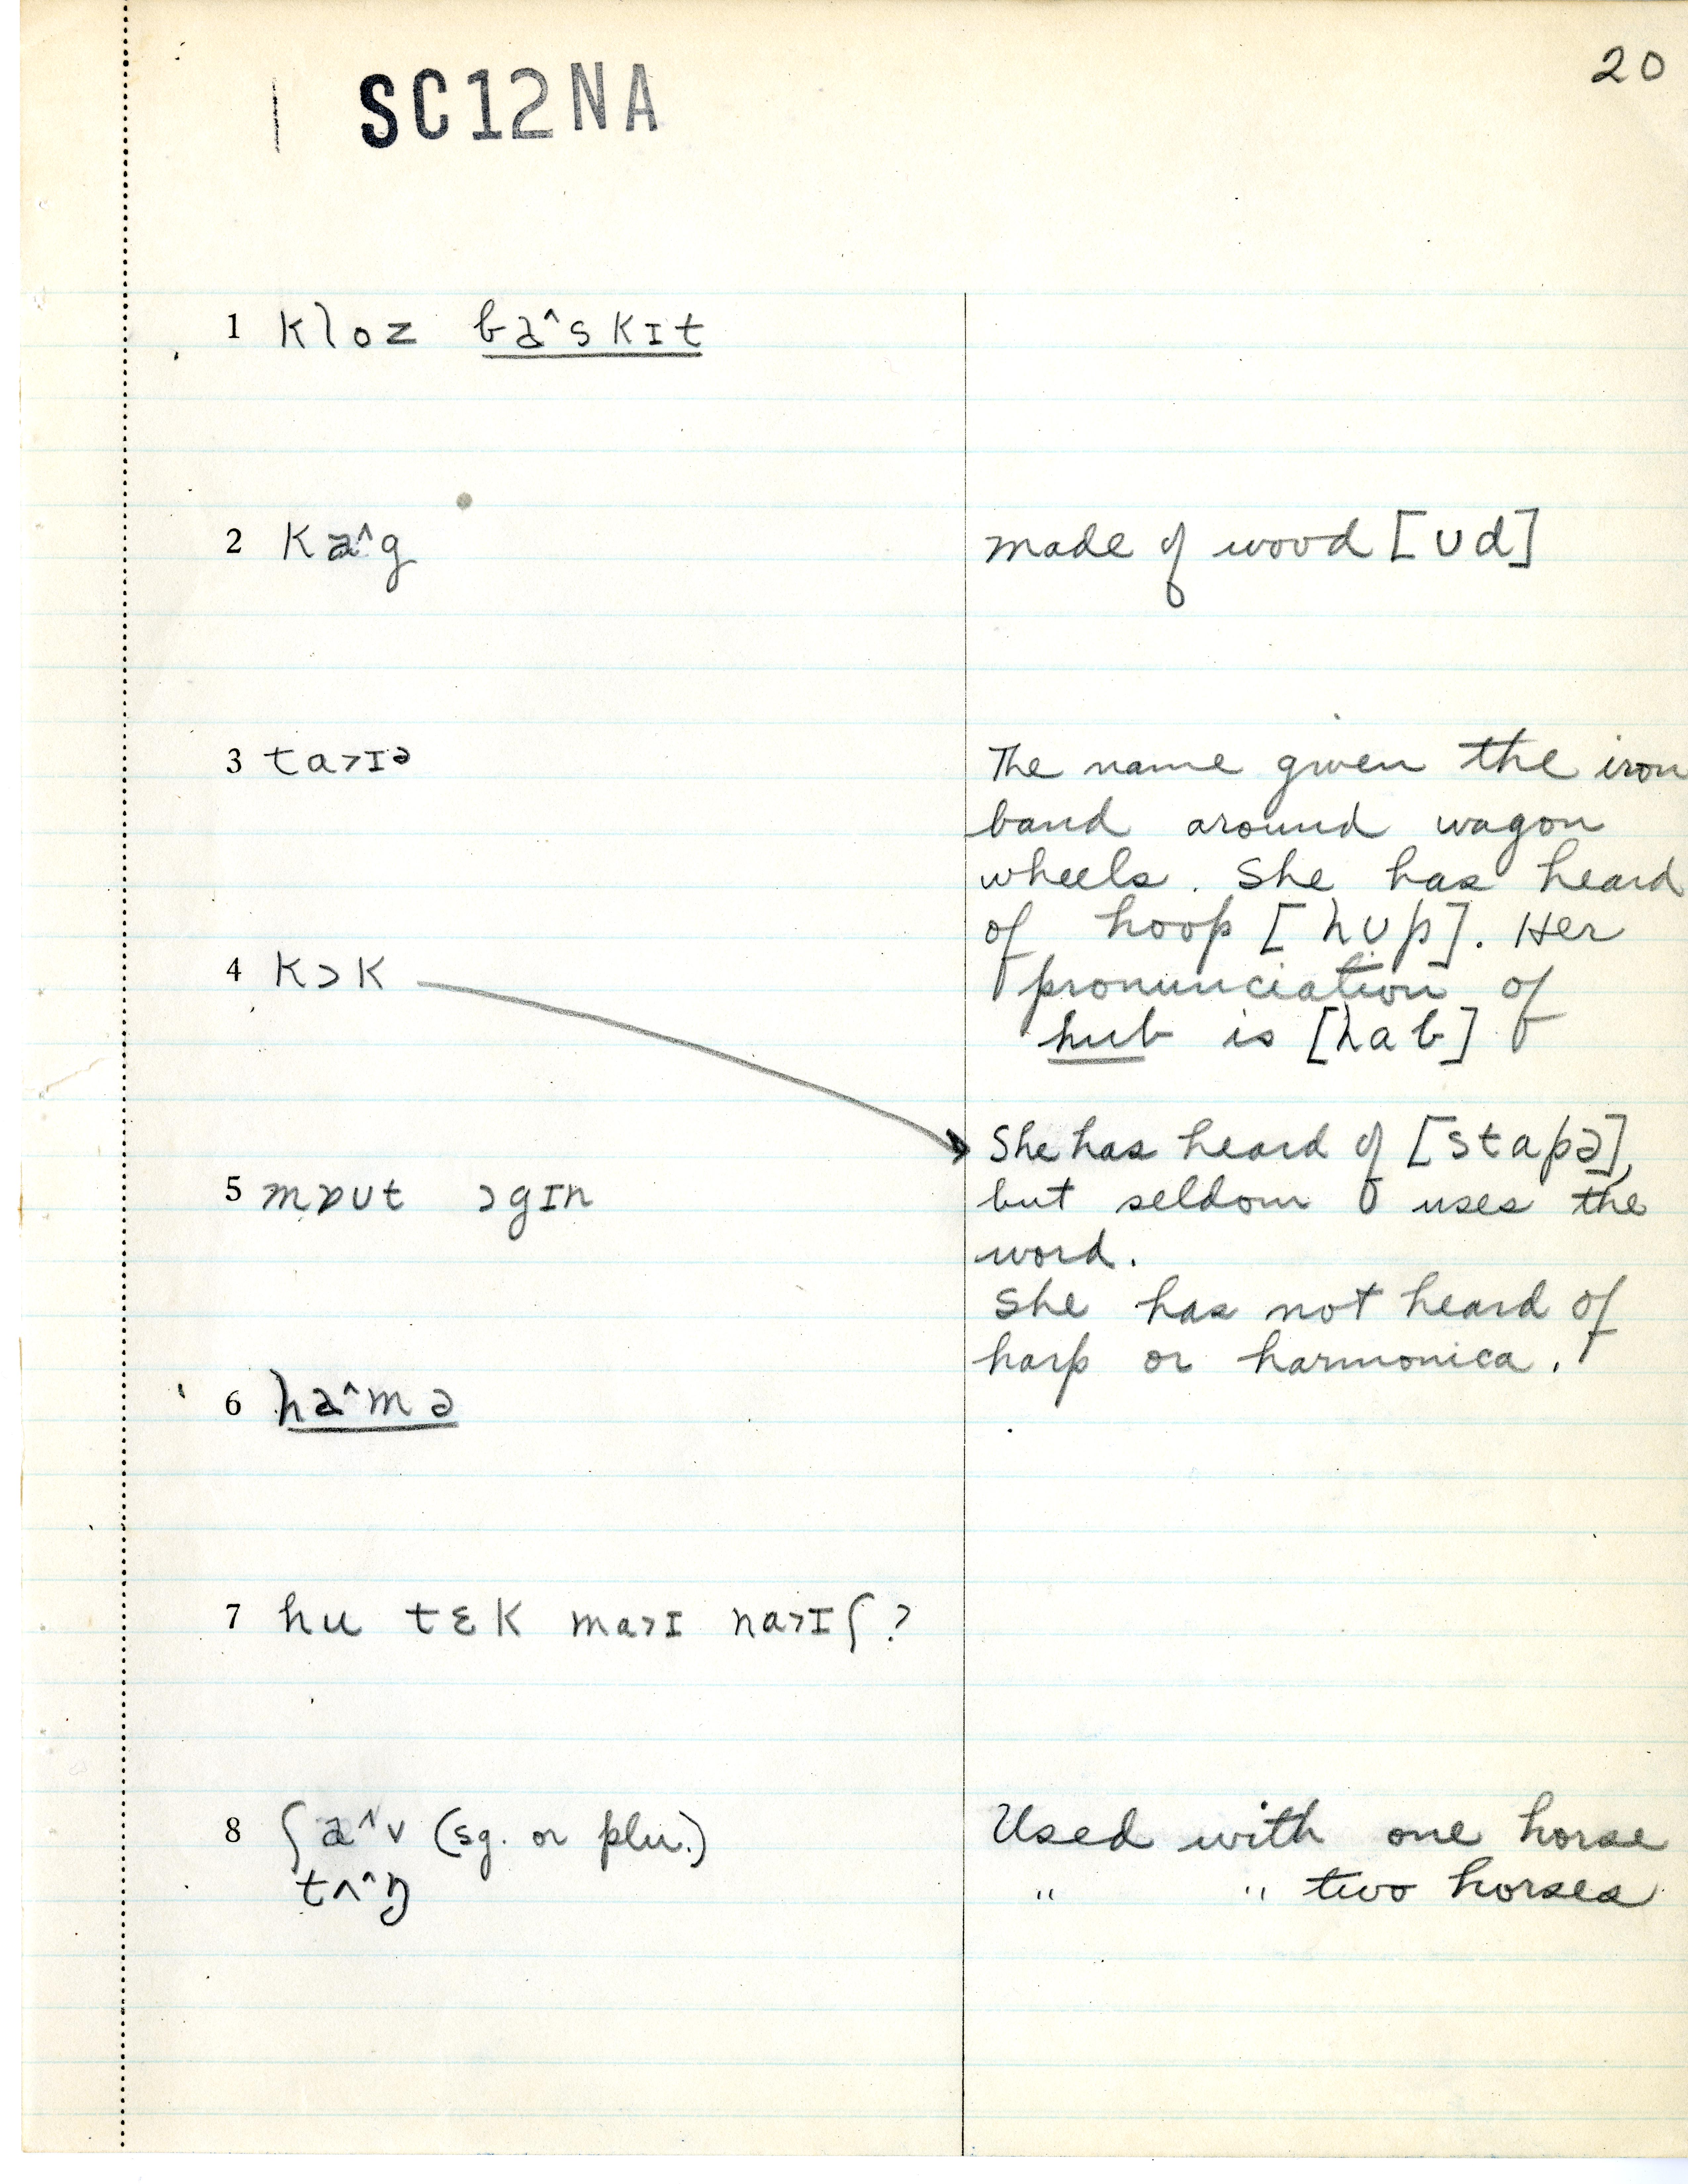 20
SC12NA
1 kloz ba^skɪt
2 ka^g
made of wood [ʊd]
3 ta>ɪə
The name given the iron
band around wagon
wheels. She has heard
of hoop [hʊp]. Her
pronunciation of
hub is [hab]
4 kɔk
She has heard of [stapə],
but seldom uses the
word.
5 mɒʊt ɔgɪn
She has not heard of
harp or harmonica.
6 ha^mə
7 hu tɛk ma>ɪ na>ɪʃ?
8 ʃa^v (sg. or plu.)
Used with one horse
tʌ^ŋ
" " two horses